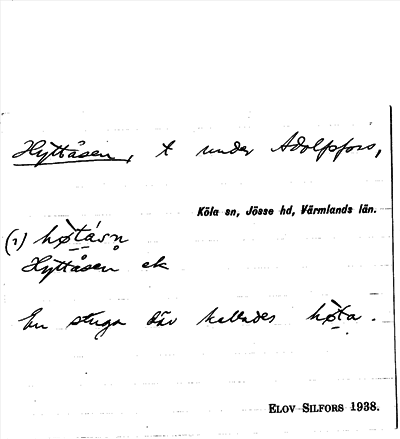 Hyttåsen, t under Adolfsfors,
Köla sn, Jösse hd, Värmlands län.
(1) hø̀tá̊sn̥
Hyttåsen ek
En stuga där kallades hø̀ta.
ELOV SILFORS 1938.